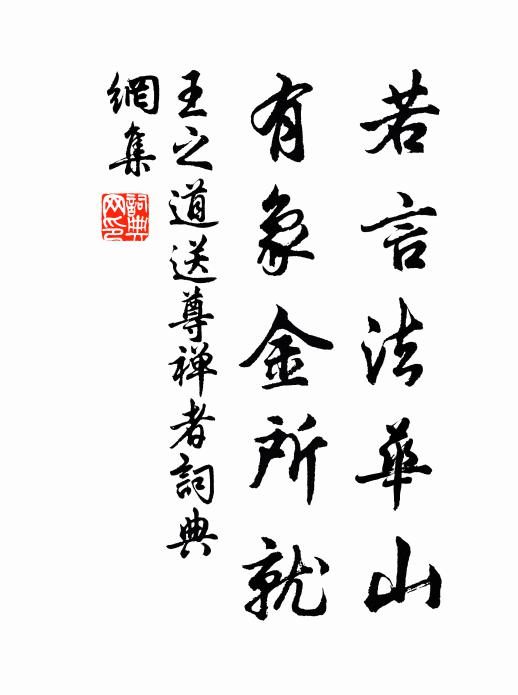 若言法華山
有象金所就
王之道送尊禅者詞典
網集
詞典
网印